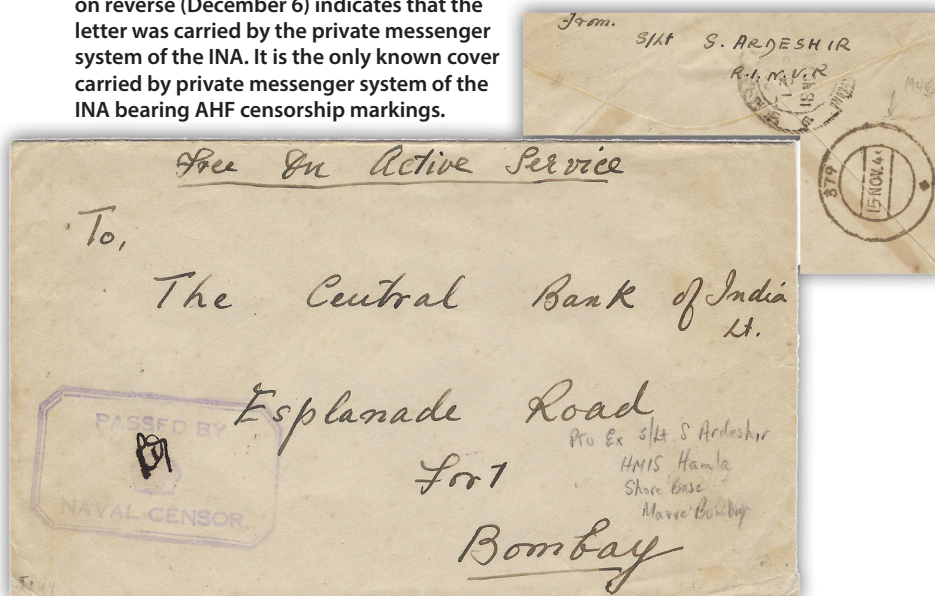 on reverse (December 6) indicates that the
letter was carried by the private messenger
system of the INA. It is the only known cover
carried by private messenger system of the
INA bearing AHF censorship markings.
From.
S/Lt S. ARDESHIR
R.I.N.V.R
379
15 NOV. 4
Free On Active Service
To,
The Central Bank of India
Lt.
Esplanade Road
Fort
Bombay
PASSED BY
NAVAL CENSOR.
Pto Ex S/Lt. S Ardeshir
HMIS Hamla
Shore Base
Marve Bombay